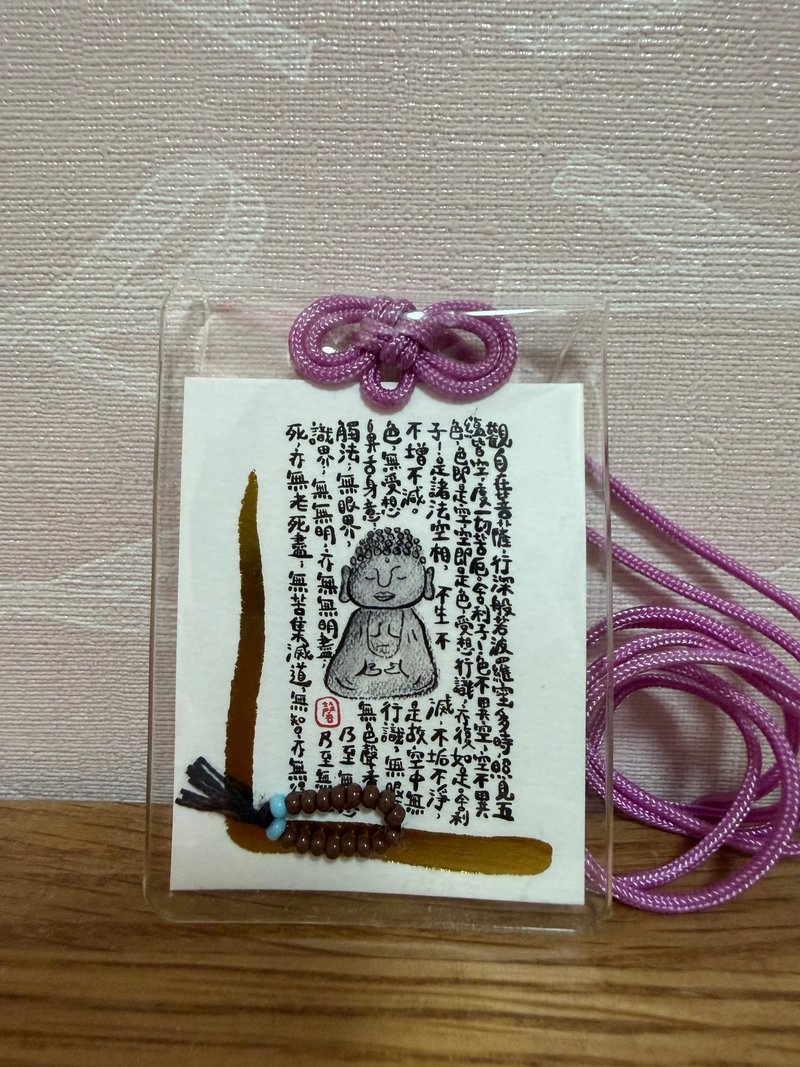 觀自在菩薩，行深般若波羅蜜多時，照見五
蘊皆空，度一切苦厄。舍利子！色不異空，空不異
色，色即是空，空即是色，受想行識，亦復如是。舍利
子！是諸法空相，不生不滅，不垢不淨，
不增不減。是故空中無
色，無受想行識，無眼
鼻舌身意，無色聲香
觸法，無眼界，乃至無
識界，無無明，亦無無明盡，乃至無
死，亦無老死盡，無苦集滅道，無智亦無